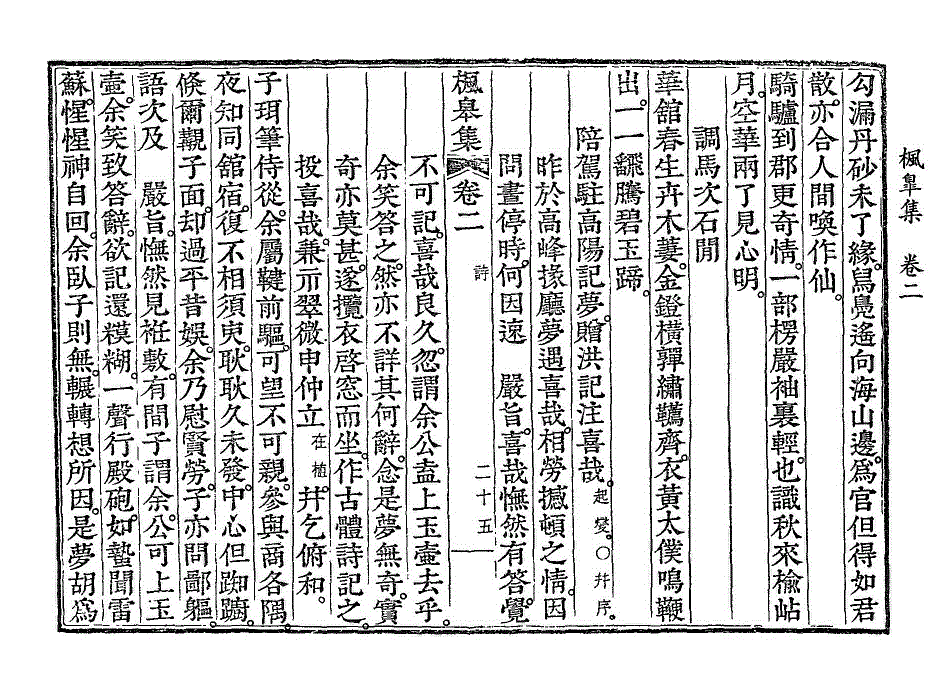 楓皐集　卷二
勾漏丹砂未了緣。舃鳧遙向海山邊。爲官但得如君
散。亦合人間喚作仙。
騎驢到郡更奇情。一部楞嚴袖裏輕。也識秋來楡岾
月。空華兩了見心明。
調馬次石閒
華舘春生卉木萋。金鐙橫嚲繡韉齊。衣黃太僕鳴鞭
出。一一飜騰碧玉蹄。
陪駕駐高陽記夢。贈洪記注喜哉。起燮。○幷序。
昨於高峰掾廳夢遇喜哉。相勞撼頓之情。因
問晝停時。何因違　嚴旨。喜哉憮然有答。覺
楓皋集　卷二　詩　二十五
不可記。喜哉良久。忽謂余公盍上玉壷去乎。
余笑答之。然亦不詳其何辭。念是夢無奇。實
奇亦莫甚。遂攬衣啓窓而坐。作古體詩記之
投喜哉。兼示翠微申仲立在植。幷乞俯和。
子珥筆侍從。余屬鞬前驅。可望不可親。參與商各隅。
夜知同舘宿。復不相須臾。耿耿久未發。中心但踟躕。
倏爾觀子面。却過平昔娛。余乃慰賢勞。子亦問鄙軀。
語次及　嚴旨。憮然見袵敷。有間子謂余。公可上玉
壷。余笑致答辭。欲記還糢糊。一聲行殿砲。如蟄聞雷
蘇。惺惺神自回。余臥子則無。輾轉想所因。是夢胡爲